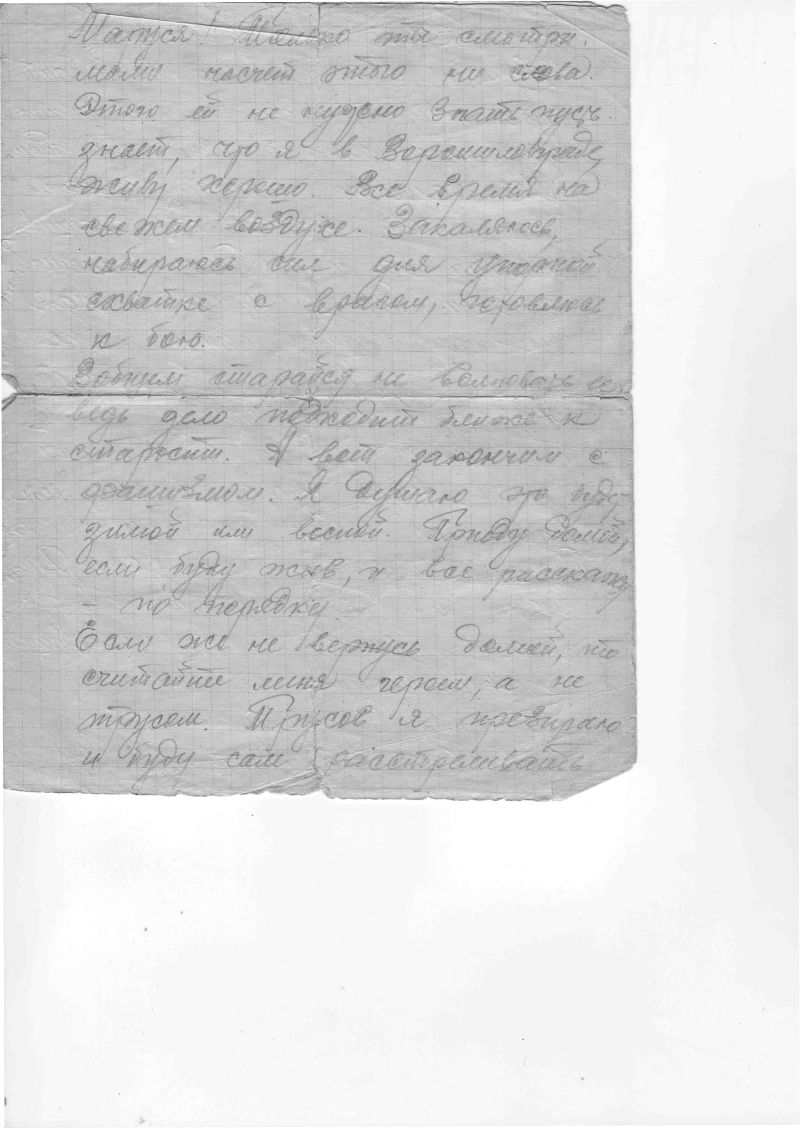 Маруся! Только ты смотри.
маме насчет этого ни слова.
Этого ей не нужно знать пусть
знает, что я в Ворошиловграде,
живу хорошо. Все время на
свежем воздухе. Закаляюсь,
набираюсь сил для упорной
схватке с врагом, готовлюсь
к бою.
Вобщим старайся не волновать ее,
ведь дело подходит ближе к
старости. А вот закончим с
фашизмом. Я думаю это будет
зимой или весной. Приеду домой,
если буду жив, и все расскажу
– по порядку
Если же не вернусь домой, то
считайте меня героем, а не
трусом. Трусов я презираю
и буду сам расстреливать